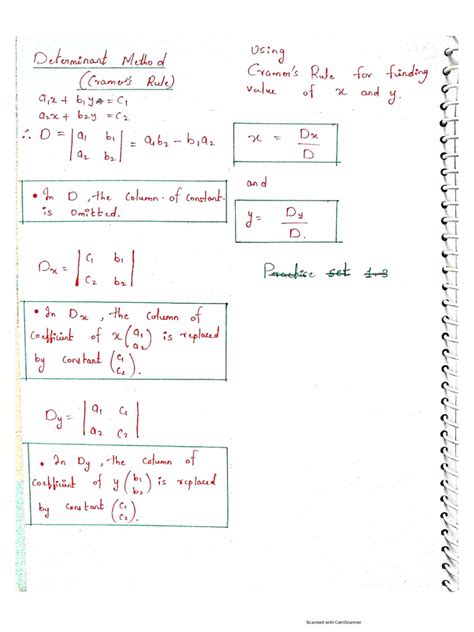 Determinant Method
(Cramer's Rule)
a₁x + b₁y = c₁
a₂x + b₂y = c₂
∴ D = | a₁ b₁ | = a₁b₂ − b₁a₂
| a₂ b₂ |
• In D, the column of constant
is omitted.
Dx = | c₁ b₁ |
| c₂ b₂ |
• In Dx, the column of
coefficient of x (a₁ a₂) is replaced
by constant (c₁ c₂).
Dy = | a₁ c₁ |
| a₂ c₂ |
• In Dy, the column of
coefficient of y (b₁ b₂) is replaced
by constant (c₁ c₂).
Using
Cramer's Rule for finding
value of x and y.
x = Dx / D
and
y = Dy / D.
Practice set 1.3
Scanned with CamScanner